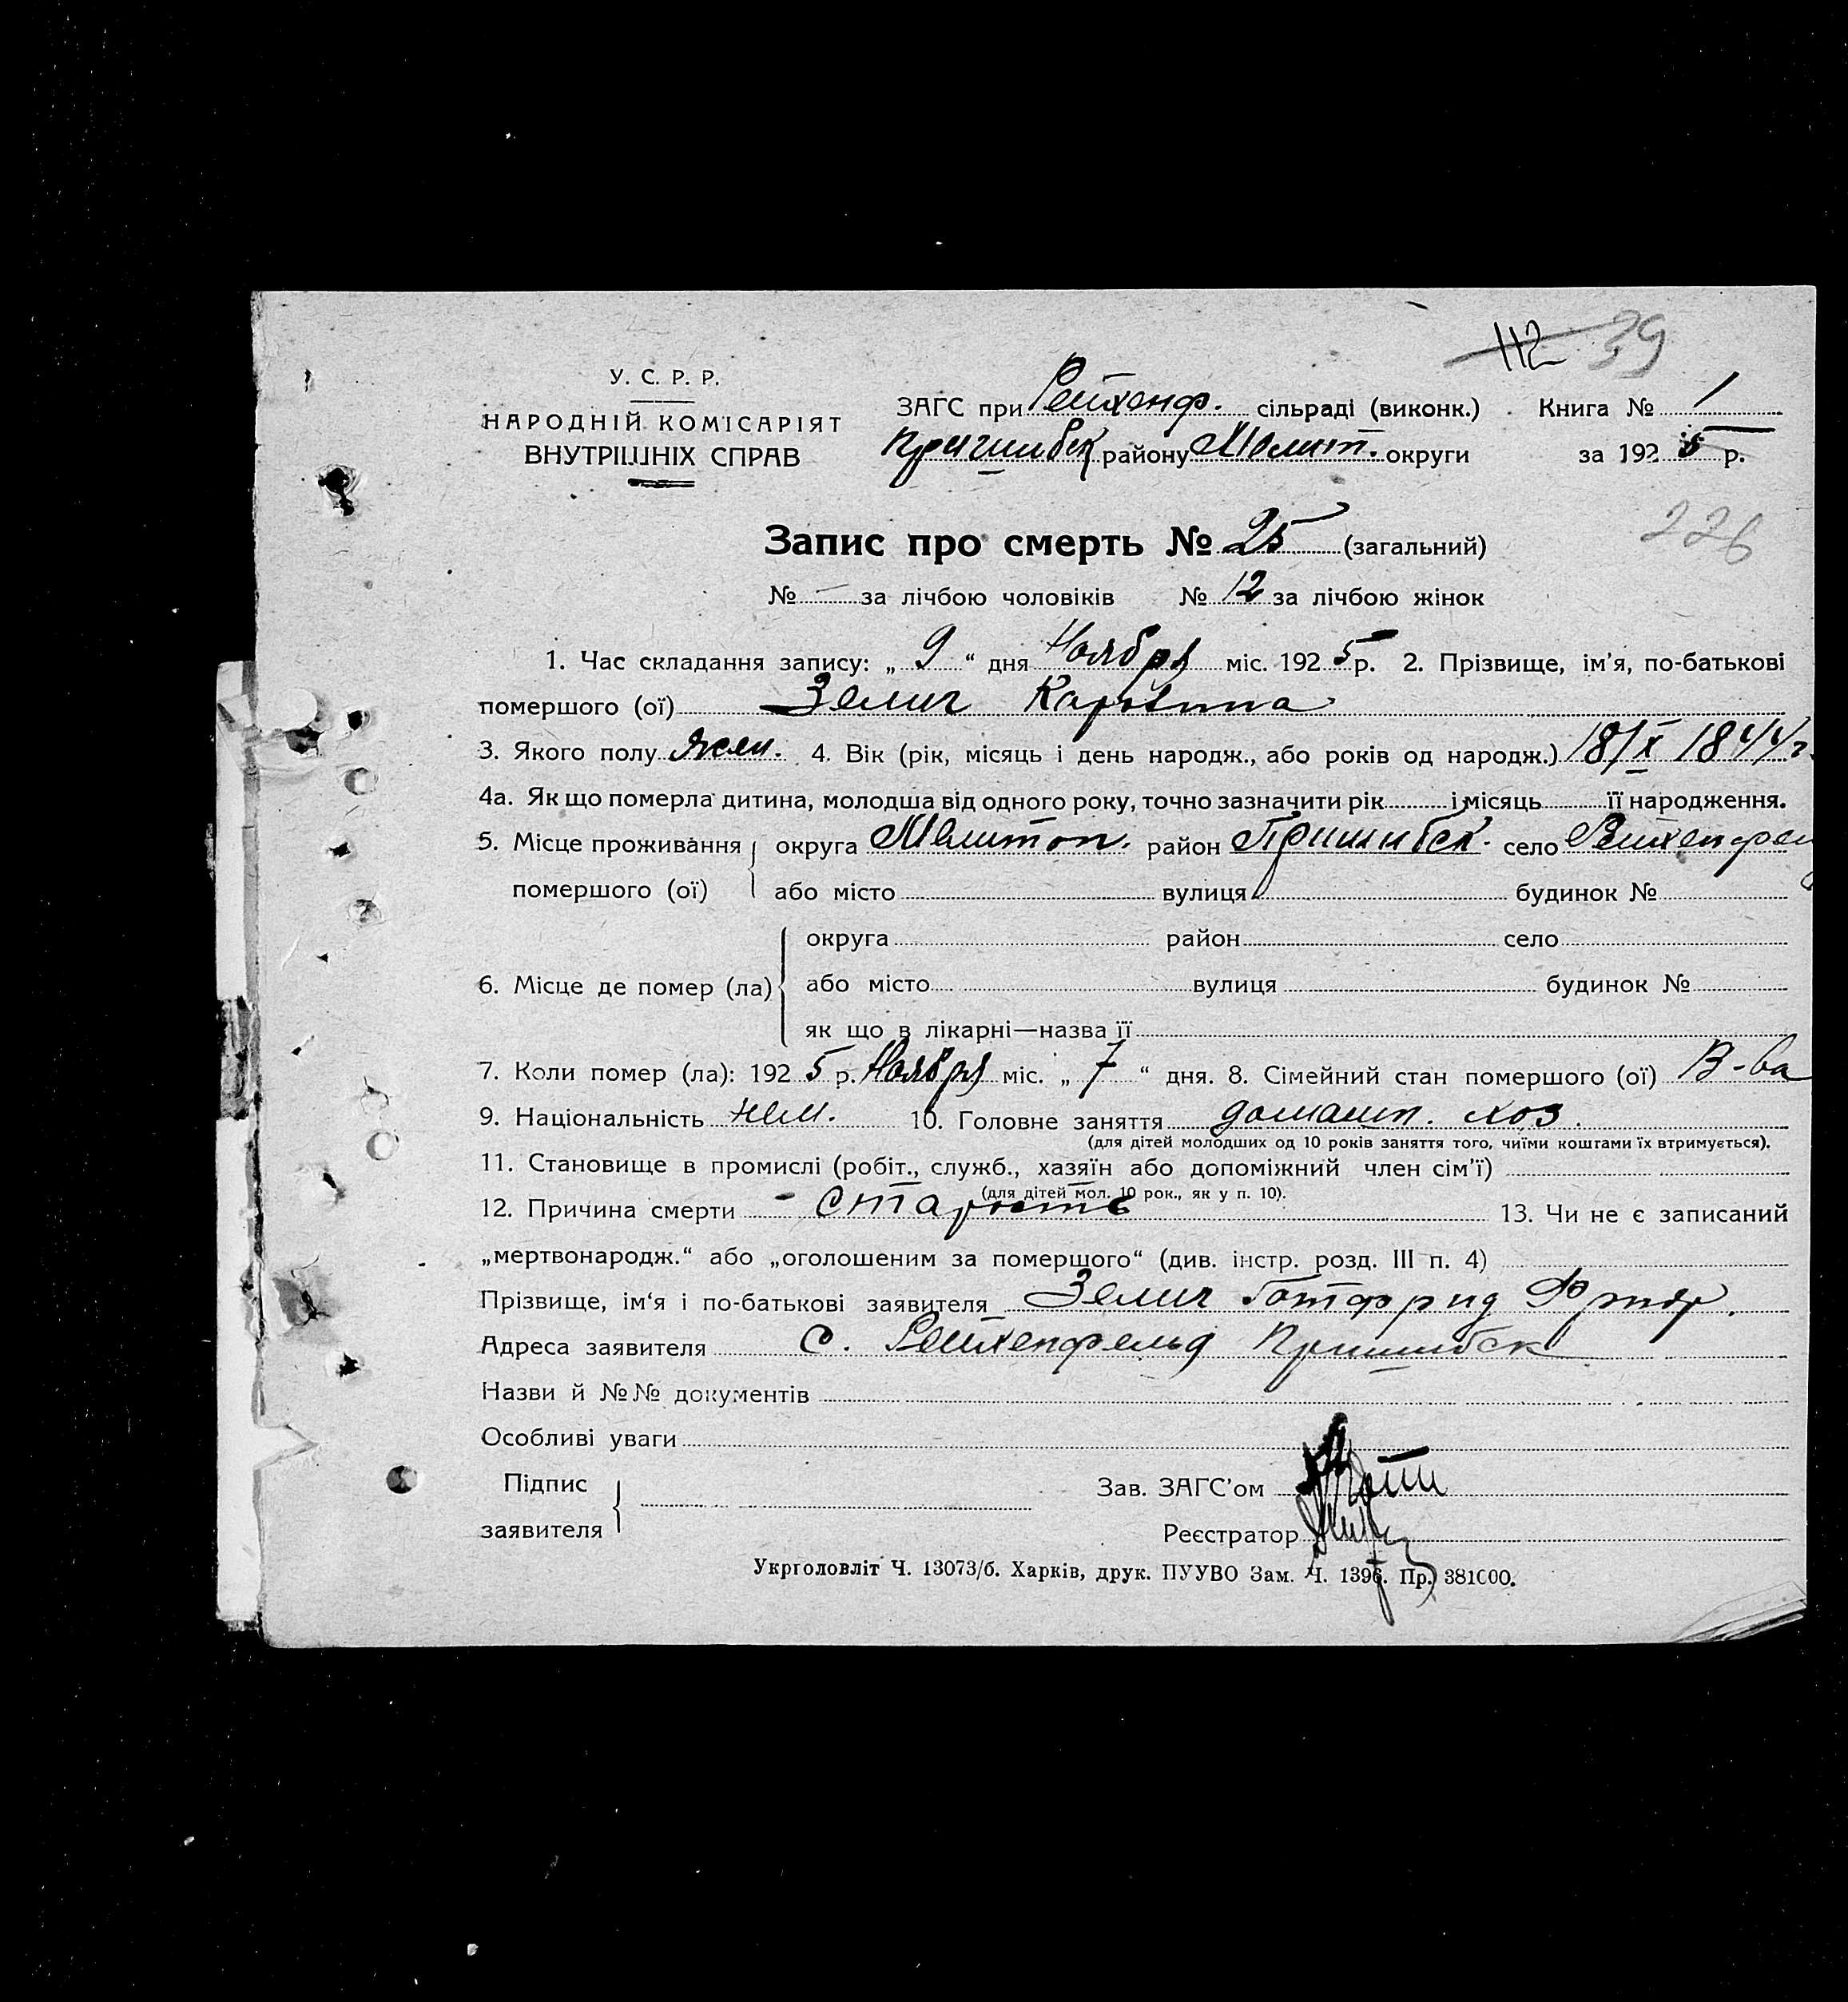 112 39
У. С. Р. Р.
НАРОДНІЙ КОМІСАРІЯТ
ВНУТРІШНІХ СПРАВ
ЗАГС при Рейхенф. сільраді (виконк.) Книга № 1
Пришибск району Мелит. округи за 1925 р.
226
Запис про смерть № 25 (загальний)
№ — за лічбою чоловіків № 12 за лічбою жінок
1. Час складання запису: „ 9 “ дня Ноября міс. 1925 р. 2. Прізвище, ім’я, по-батькові
помершого (ої) Зелиг Каролина
3. Якого полу жен. 4. Вік (рік, місяць і день народж., або років од народж.) 18/X 1844 г.
4а. Як що померла дитина, молодша від одного року, точно зазначити рік і місяць її народження.
5. Місце проживання округа Мелитоп. район Пришибск. село Рейхенфел
помершого (ої) або місто вулиця будинок №
округа район село
6. Місце де помер (ла) або місто вулиця будинок №
як що в лікарні—назва її
7. Коли помер (ла): 1925 р. Ноября міс. „ 7 “ дня. 8. Сімейний стан помершого (ої) В-ва
9. Національність нем. 10. Головне заняття домашн. хоз.
(для дітей молодших од 10 років заняття того, чиїми коштами їх втримується).
11. Становище в промислі (робіт., служб., хазяїн або допоміжний член сім’ї)
(для дітей мол. 10 рок., як у п. 10).
12. Причина смерти - старость 13. Чи не є записаний
„мертвонародж.“ або „оголошеним за помершого“ (див. інстр. розд. III п. 4)
Прізвище, ім‘я і по-батькові заявителя Зелиг Готфрид
Адреса заявителя с. Рейхенфельд Пришибск
Назви й №№ документів
Особливі уваги
Підпис
заявителя
Зав. ЗАГС’ом
Реєстратор
Укрголовліт Ч. 13073/б. Харків, друк. ПУУВО Зам. Ч. 1396. Пр. 381000.